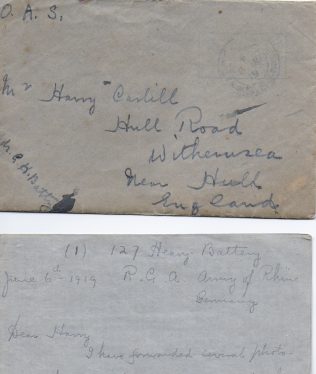 O. A. S.
Mr Harry Carlill
Hull Road
Withernsea
Near Hull
England
(1) 127 Heavy Battery
June 6th - 1919 R. G. A. Army of Rhine
Germany
Dear Harry
I have forwarded several photo-